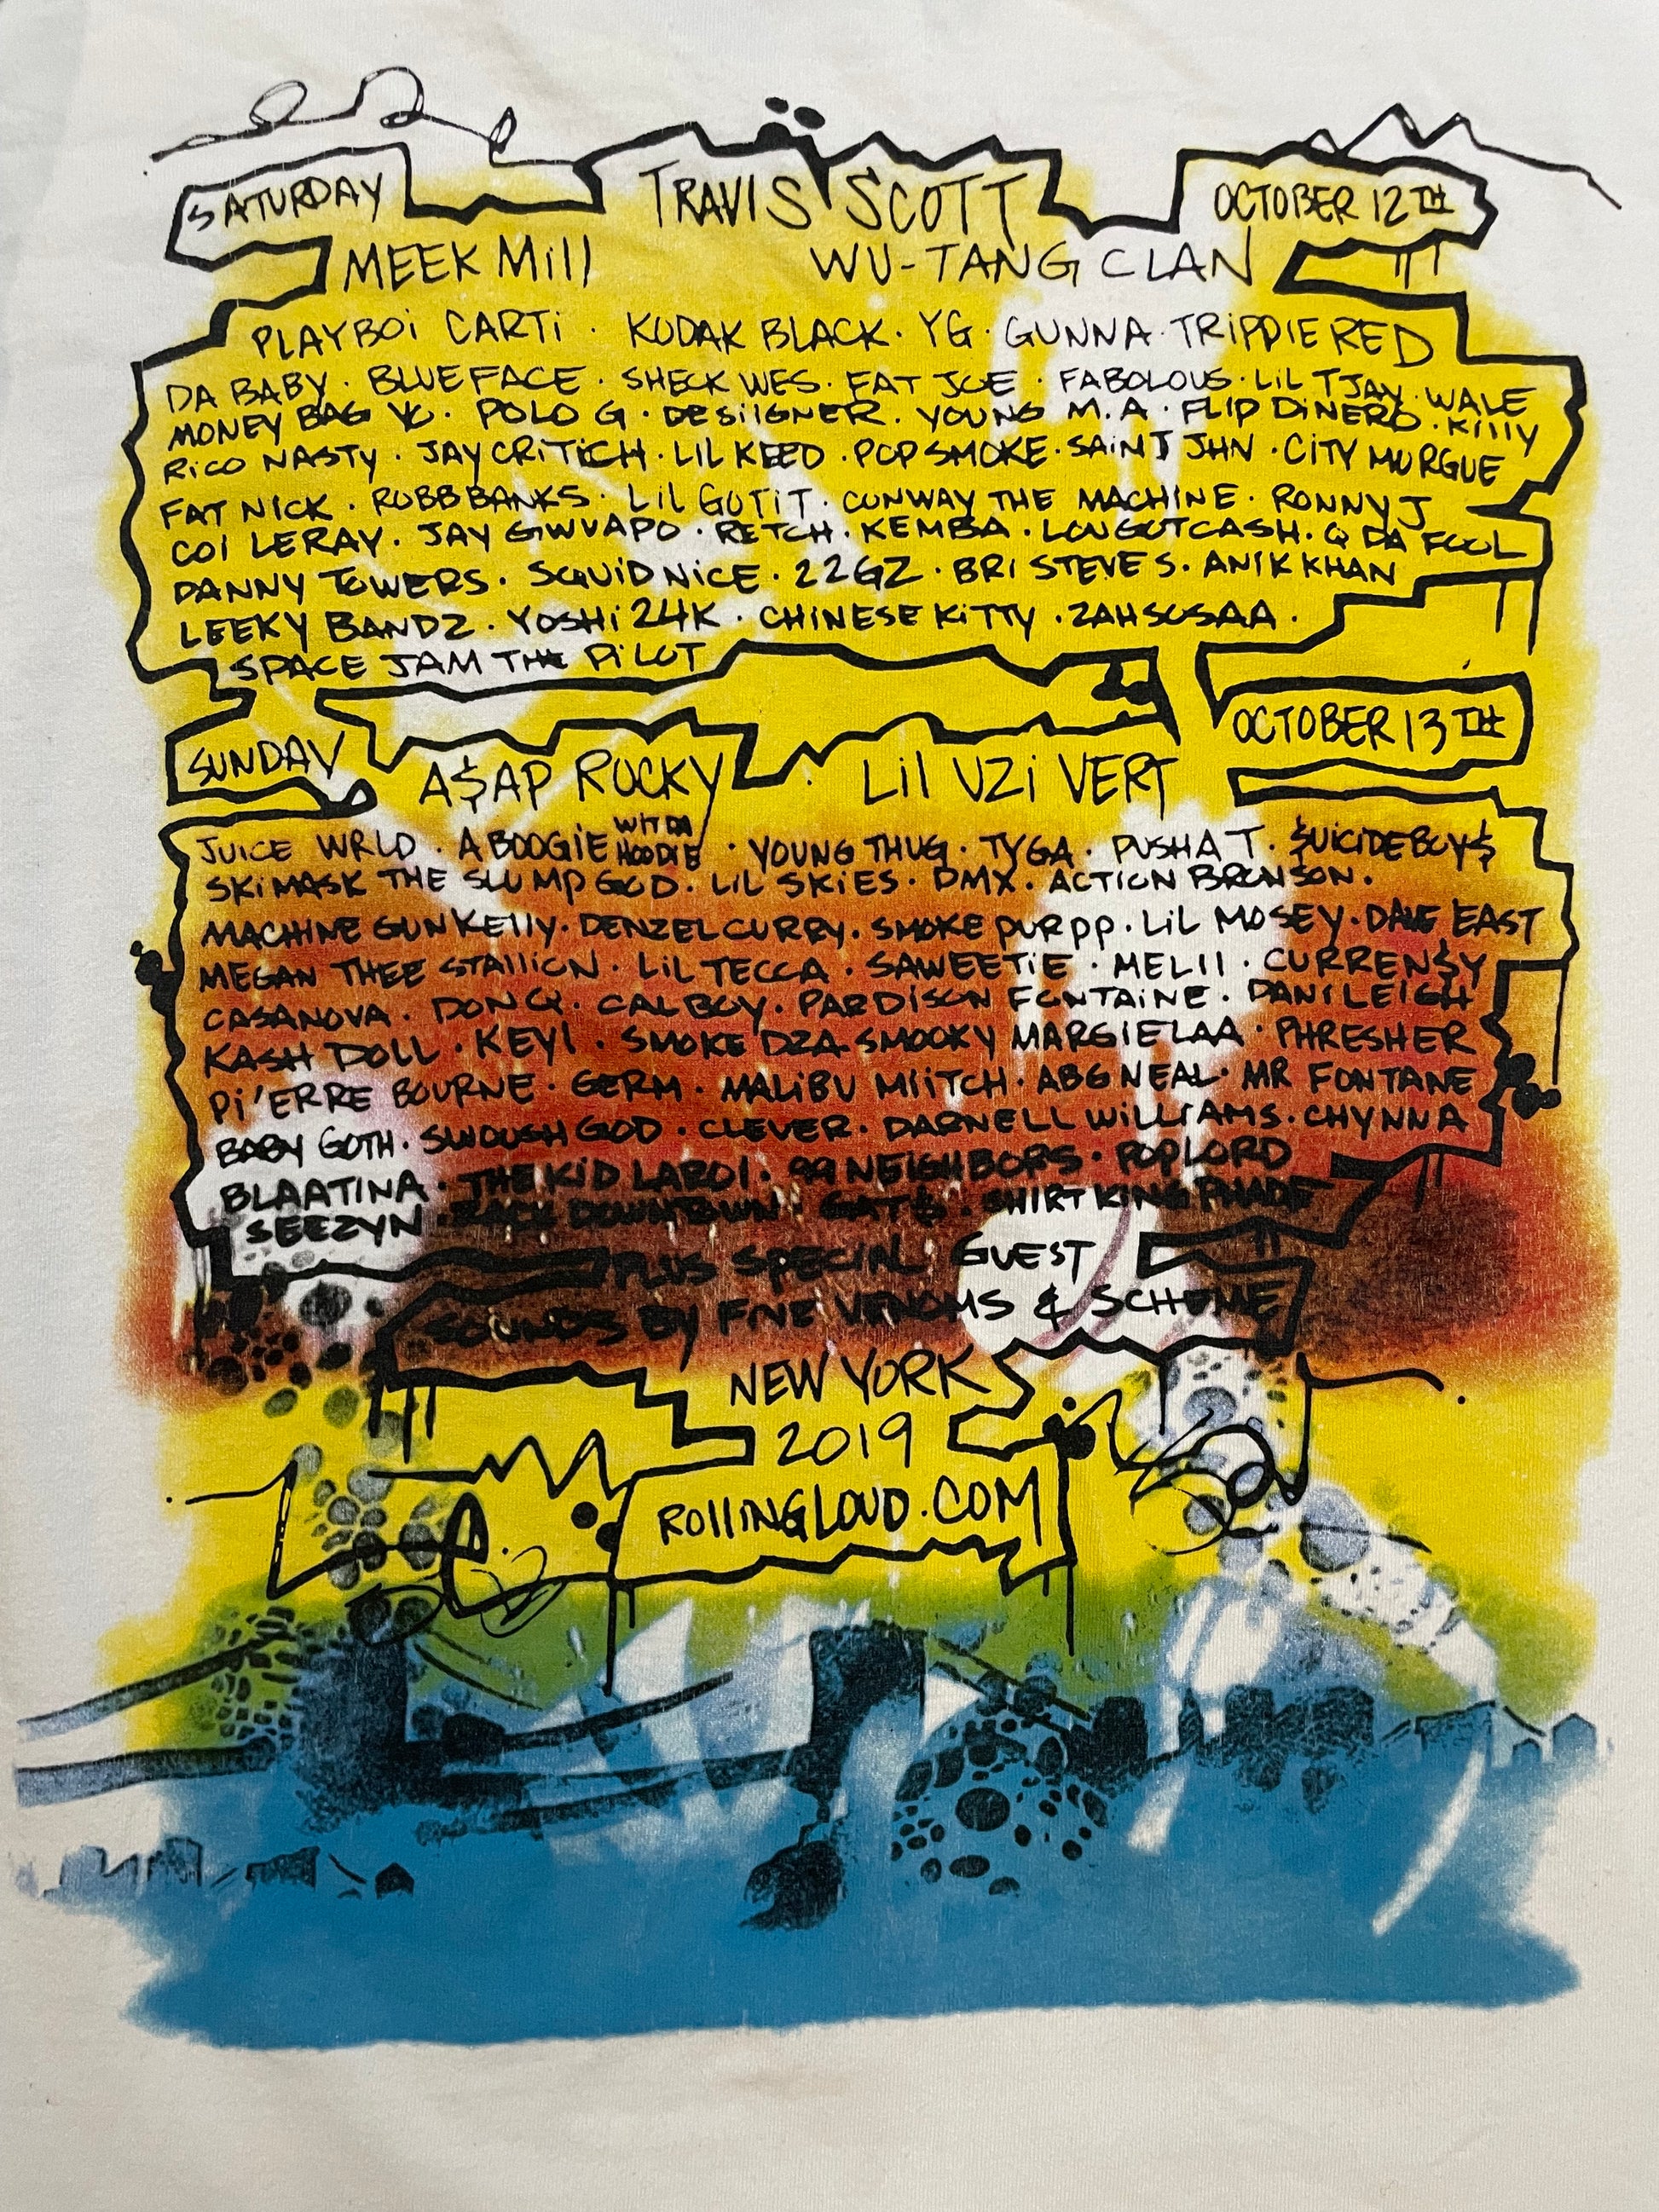 SATURDAY TRAVIS SCOTT OCTOBER 12TH
MEEK Mill WU-TANG CLAN
PLAYBOi CARTi · KODAK BLACK · YG · GUNNA · TRIPPIE RED
DA BABY · BLUEFACE · SHECK WES · FAT JOE · FABOLOUS · LiL TJAY · WALE
MONEY BAG YO · POLO G · DESiiGNER · YOUNG M.A · FLIP DiNERO · Killy
RiCO NASTY · JAY CRiTiCH · LIL KEED · POP SMOKE · SAiNT JHN · CiTY MURGUE
FAT NICK · ROBB BANKS · LiL GOTiT · CONWAY THE MACHINE · RONNY J
COI LERAY · JAY GWUAPO · RETCH · KEMBA · LOUGOTCASH · Q DA FOOL
DANNY TOWERS · SQUiDNiCE · 22GZ · BRI STEVES · ANIK KHAN
LEEKY BANDZ · YOSHi 24K · CHINESE KiTTY · ZAHSOSAA ·
SPACE JAM THE PiLOT
SUNDAY A$AP ROCKY · LiL UZi VERT OCTOBER 13TH
JUICE WRLD · A BOOGiE WIT DA HOODIE · YOUNG THUG · TYGA · PUSHA T · $UICIDEBOY$
SKiMASK THE SLUMP GOD · LiL SKiES · DMX · ACTION BRONSON ·
MACHINE GUN KElly · DENZEL CURRY · SMOKE PURPP · LiL MOSEY · DAVE EAST
MEGAN THEE STAlliON · LiL TECCA · SAWEETiE · MELII · CURREN$Y
CASANOVA · DON Q · CALBOY · PARDISON FONTAiNE · DANILEIGH
KASH DOLL · KEY! · SMOKE DZA · SMOOKY MARGIELAA · PHRESHER
Pi'ERRE BOURNE · GERM · MALiBU MiiTCH · ABG NEAL · MR FONTANE
BABY GOTH · SWOUSH GOD · CLEVER · DARNELL WiLLIAMS · CHYNNA
BLAATINA · THE KiD LAROI · 99 NEIGHBORS · POPLORD
SEEZYN · ZACK DOWNTOWN · GAT$ · SHIRT KING PHADE
PLUS SPECIAL GUEST
SOUNDS BY FIVE VENOMS & SCHEME
NEW YORK
2019
ROllINGLOUD.COM